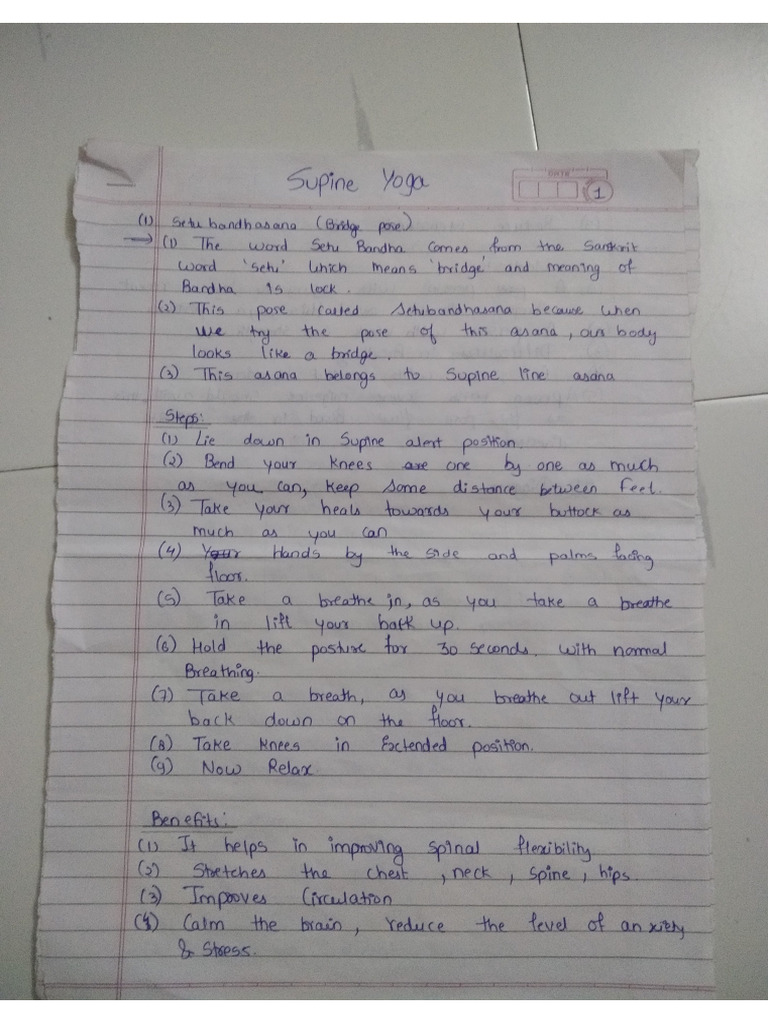 Supine Yoga
DATE
1
(1) Setubandhasana (Bridge pose)
→ (1) The word Setu Bandha comes from the Sanskrit
word 'setu' which means 'bridge' and meaning of
Bandha is lock.
(2) This pose called Setubandhasana because when
we try the pose of this asana, our body
looks like a bridge.
(3) This asana belongs to Supine line asana
Steps:
(1) Lie down in Supine alert position.
(2) Bend your knees are one by one as much
as you can, keep some distance between feet.
(3) Take your heals towards your buttock as
much as you can
(4) Your Hands by the side and palms facing
floor.
(5) Take a breathe in, as you take a breathe
in lift your back up.
(6) Hold the posture for 30 seconds. with normal
Breathing.
(7) Take a breath, as you breathe out lift your
back down on the floor.
(8) Take knees in Extended position.
(9) Now Relax.
Benefits:
(1) It helps in improving spinal flexibility
(2) Stretches the chest, neck, spine, hips.
(3) Improves Circulation
(4) Calm the brain, reduce the level of anxiety
& Stress.